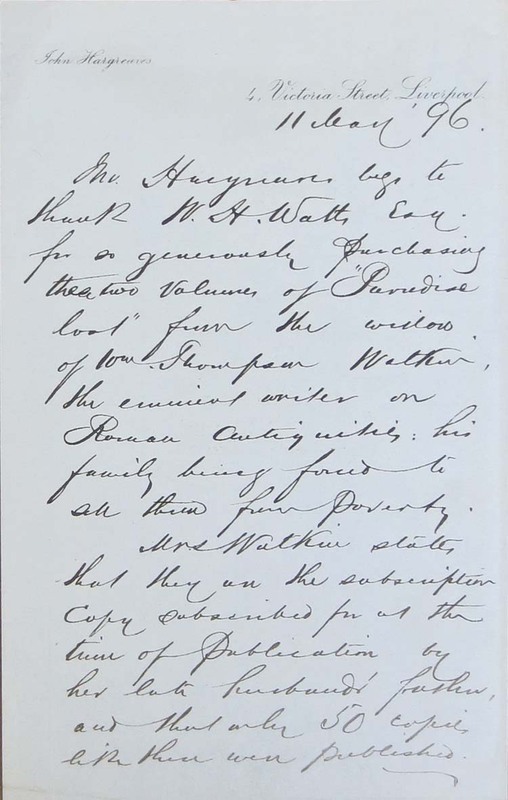 John Hargreaves
4, Victoria Street, Liverpool.
11 May '96.
Mr. Hargreaves begs to
thank W. H. Watts Esq.
for so generously purchasing
the two Volumes of "Paradise
lost" from the widow
of Wm. Thompson Watkin,
the eminent writer on
Roman Antiquities; his
family being forced to
sell them from Poverty.
Mrs Watkin states
that they are the subscription
Copy subscribed for at the
time of Publication by
her late husbands' father,
and that only 50 copies
like these were published.